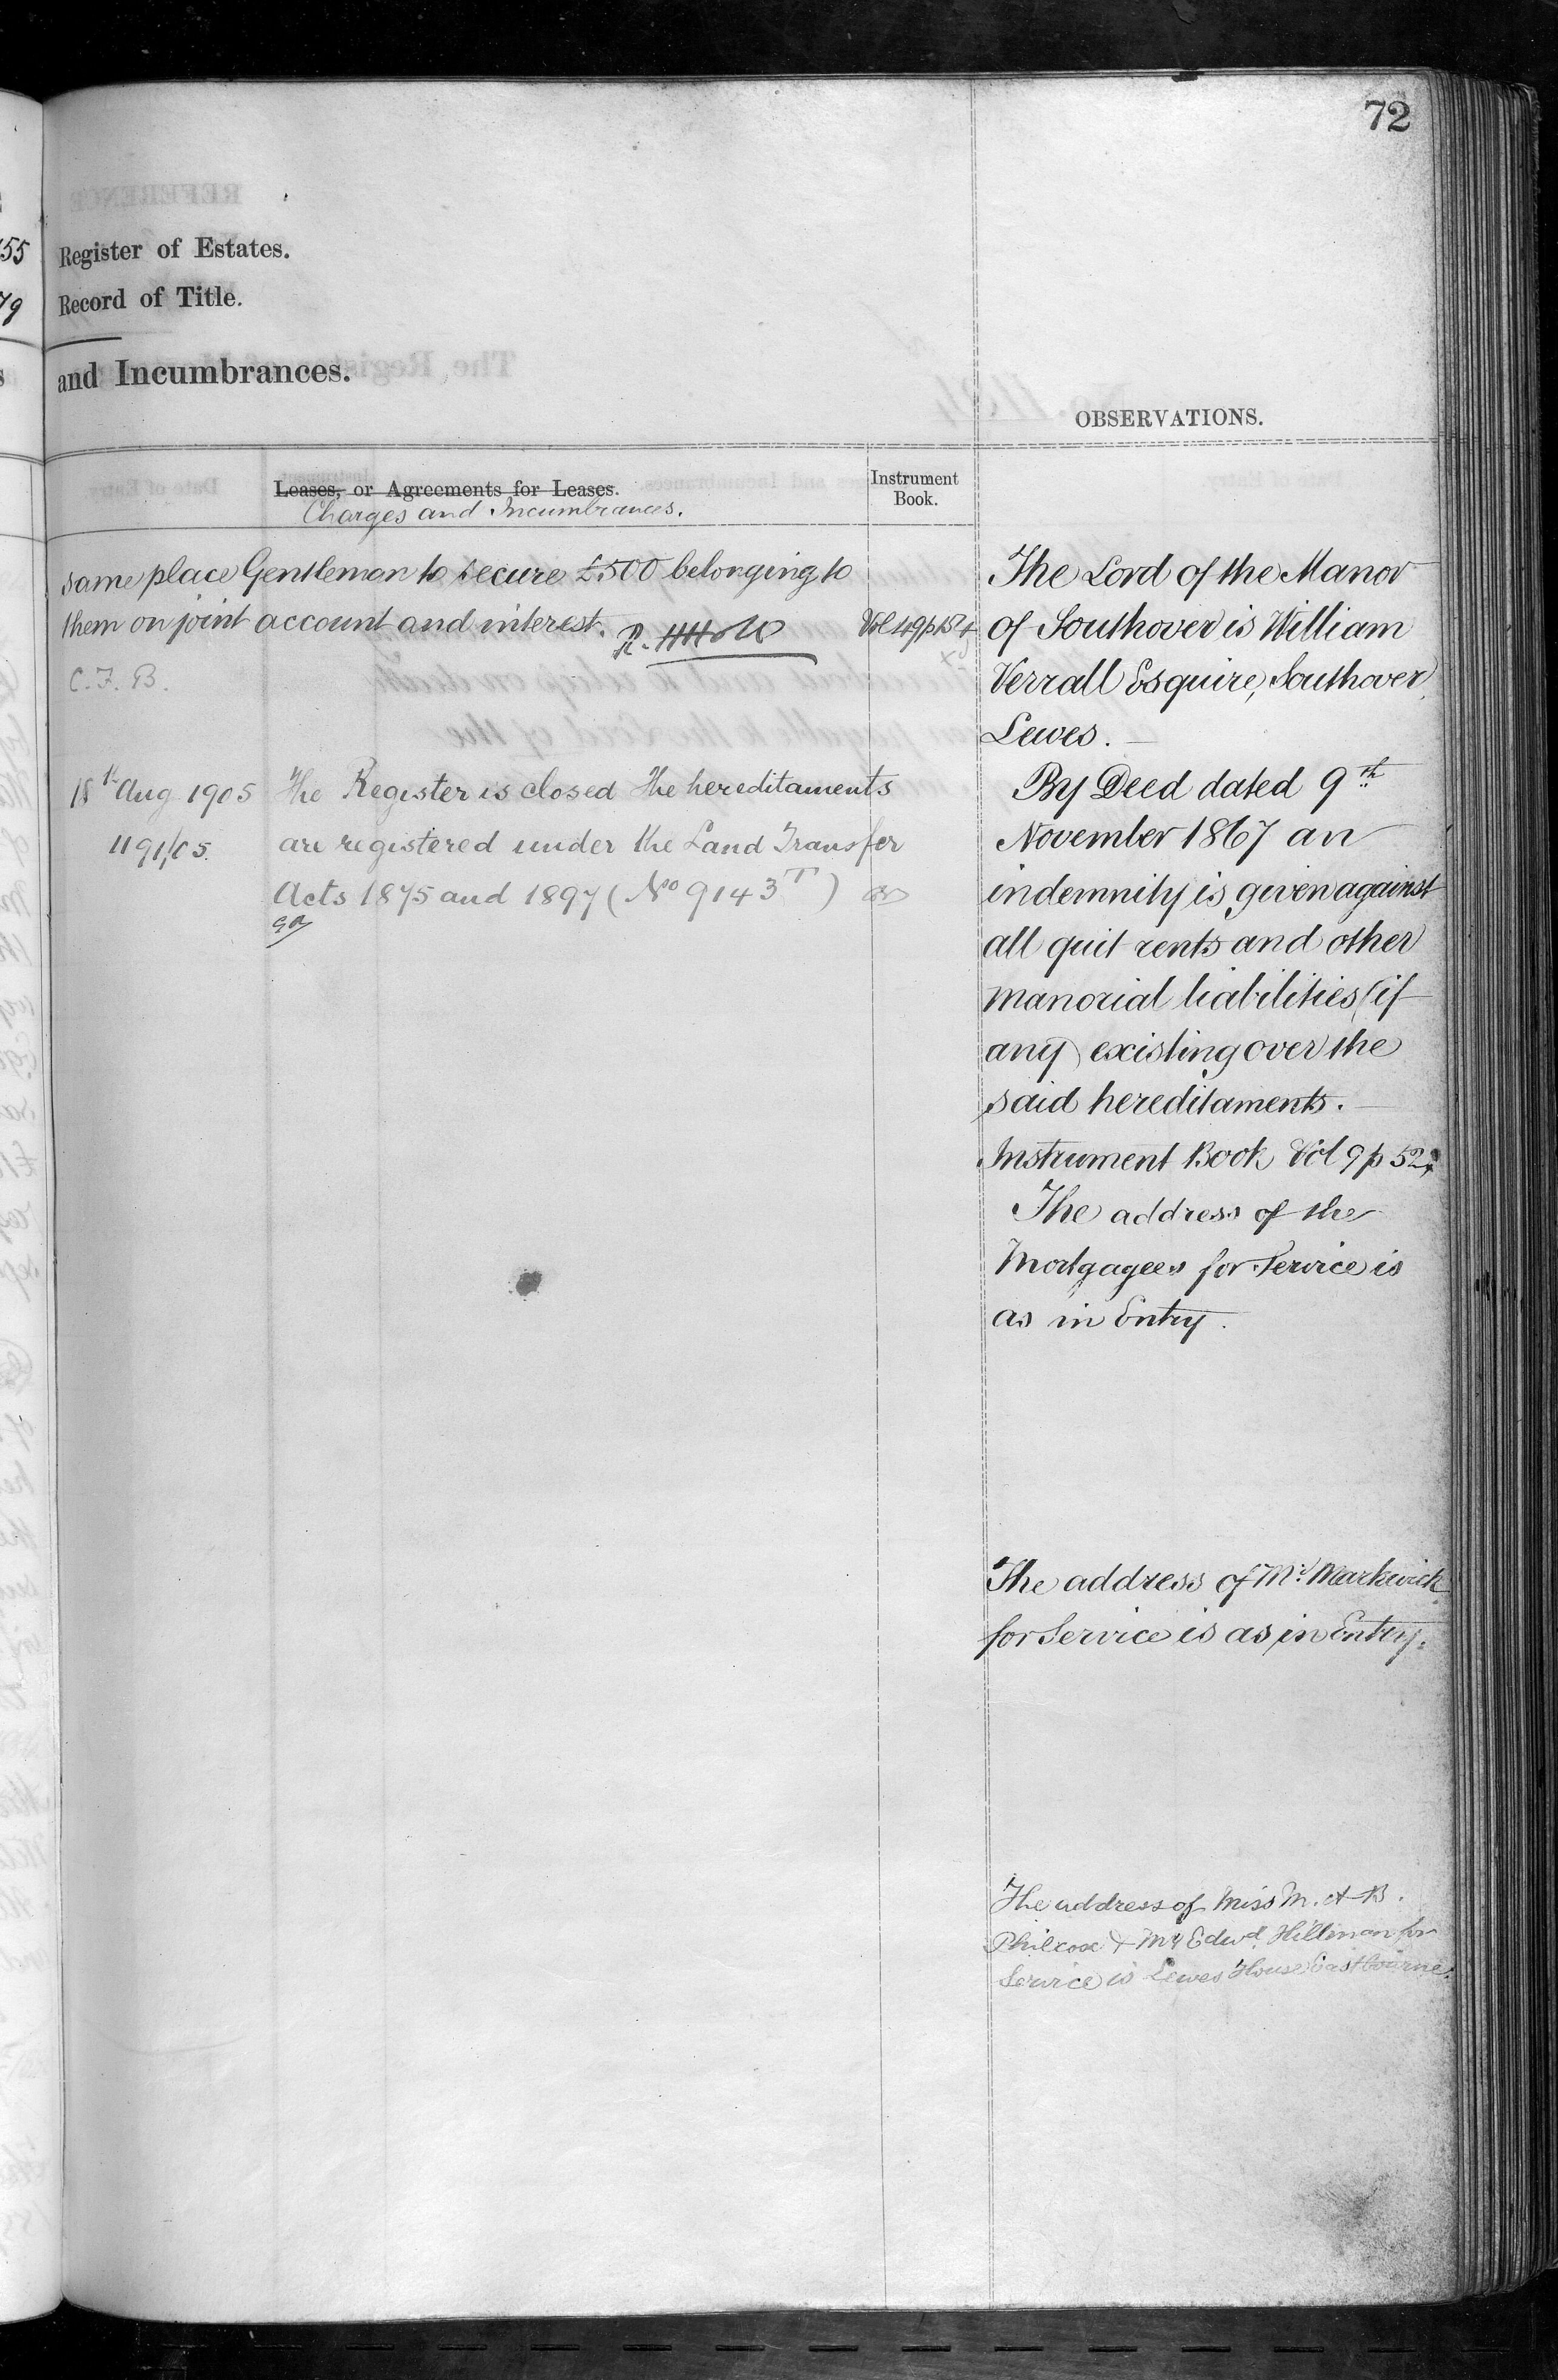 72
Register of Estates.
Record of Title.
and Incumbrances.
OBSERVATIONS.
Leases, or Agreements for Leases.
Charges and Incumbrances.
Instrument
Book.
same place Gentleman to secure £500 belonging to
them on joint account and interest.
Vol 49 p 154
C. F. B.
18th Aug 1905 The Register is closed The hereditaments
1191/05. are registered under the Land Transfer
Acts 1875 and 1897 (No 9143T)
The Lord of the Manor
of Southover is William
Verrall Esquire, Southover,
Lewes.
By Deed dated 9th
November 1867 an
indemnity is given against
all quit rents and other
manorial liabilities (if
any) existing over the
said hereditaments.
Instrument Book Vol 9 p 52
The address of the
Mortgagees for Service is
as in Entry.
The address of Mr Markwick
for Service is as in Entry.
The address of Miss M. A. B.
Philcox & Mr Edwd Hillman for
Service is Lewes House Eastbourne.